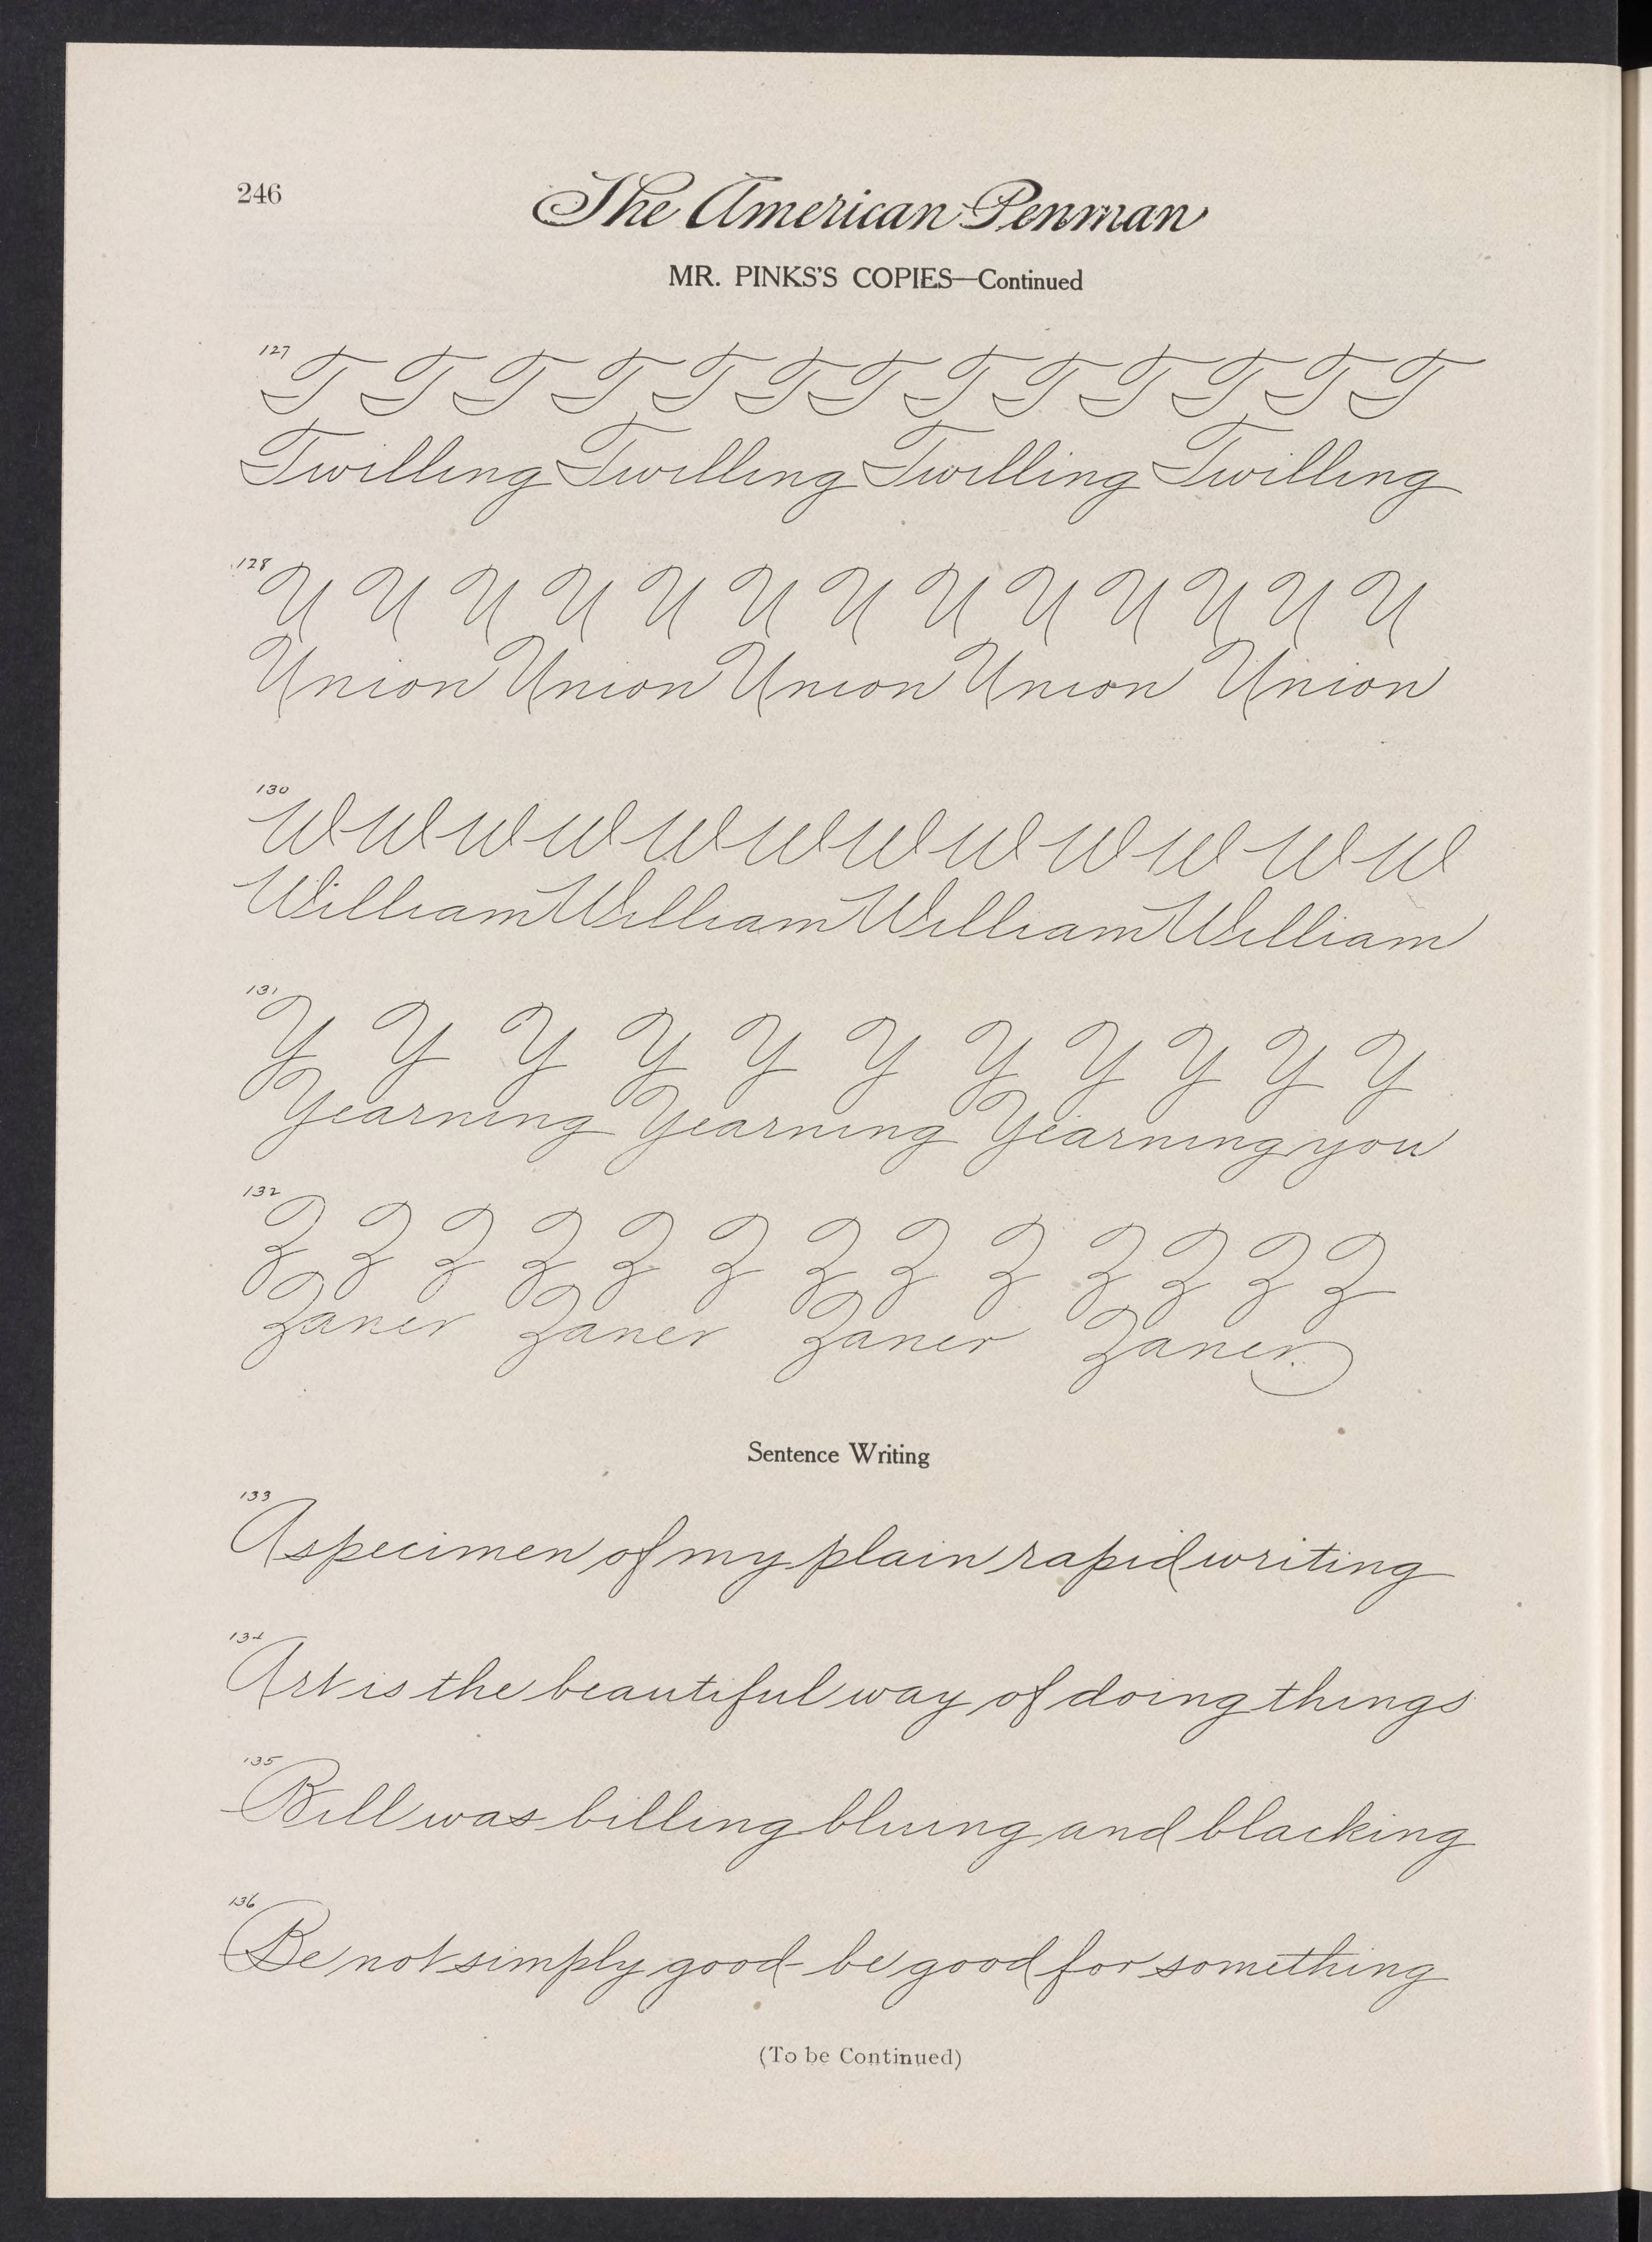 246
The American Penman
MR. PINKS'S COPIES—Continued
127
T T T T T T T T T T T T T
Twilling Twilling Twilling Twilling
128
U U U U U U U U U U U U U
Union Union Union Union Union
130
W W W W W W W W W W W W
William William William William
131
Y Y Y Y Y Y Y Y Y Y Y
Yearning Yearning Yearning you
132
Z Z Z Z Z Z Z Z Z Z Z Z Z
Zaner Zaner Zaner Zaner
Sentence Writing
133
A specimen of my plain rapid writing
134
Art is the beautiful way of doing things
135
Bill was billing bluing and blacking
136
Be not simply good - be good for something
(To be Continued)